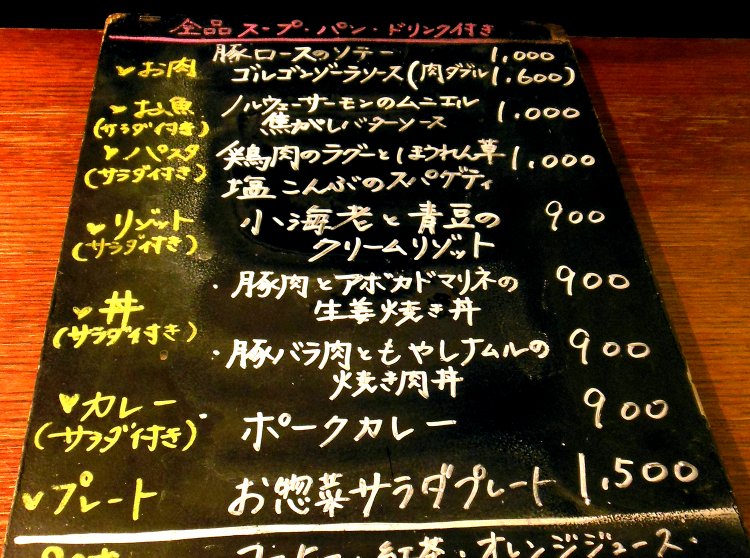 全品スープ・パン・ドリンク付き
お肉 豚ロースのソテー 1,000
ゴルゴンゾーラソース(肉ダブル1,600)
お魚 ノルウェーサーモンのムニエル 1,000
(サラダ付き) 焦がしバターソース
パスタ 鶏肉のラグーとほうれん草 1,000
(サラダ付き) 塩こんぶのスパゲティ
リゾット 小海老と青豆の 900
(サラダ付き) クリームリゾット
丼 ・豚肉とアボカドマリネの 900
(サラダ付き) 生姜焼き丼
・豚バラ肉ともやしナムルの 900
焼き肉丼
カレー ポークカレー 900
(サラダ付き)
プレート お惣菜サラダプレート 1,500
コーヒー・紅茶・オレンジジュース・